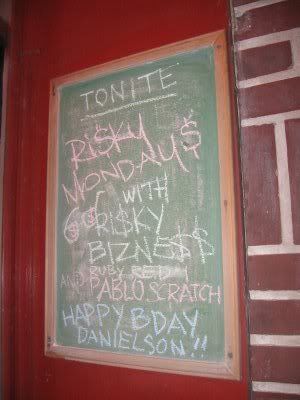 TONITE
RISKY
MONDAY$
WITH
RISKY
BIZNE$$
AND RUBY RED
PABLO SCRATCH
HAPPY BDAY
DANIELSON!!